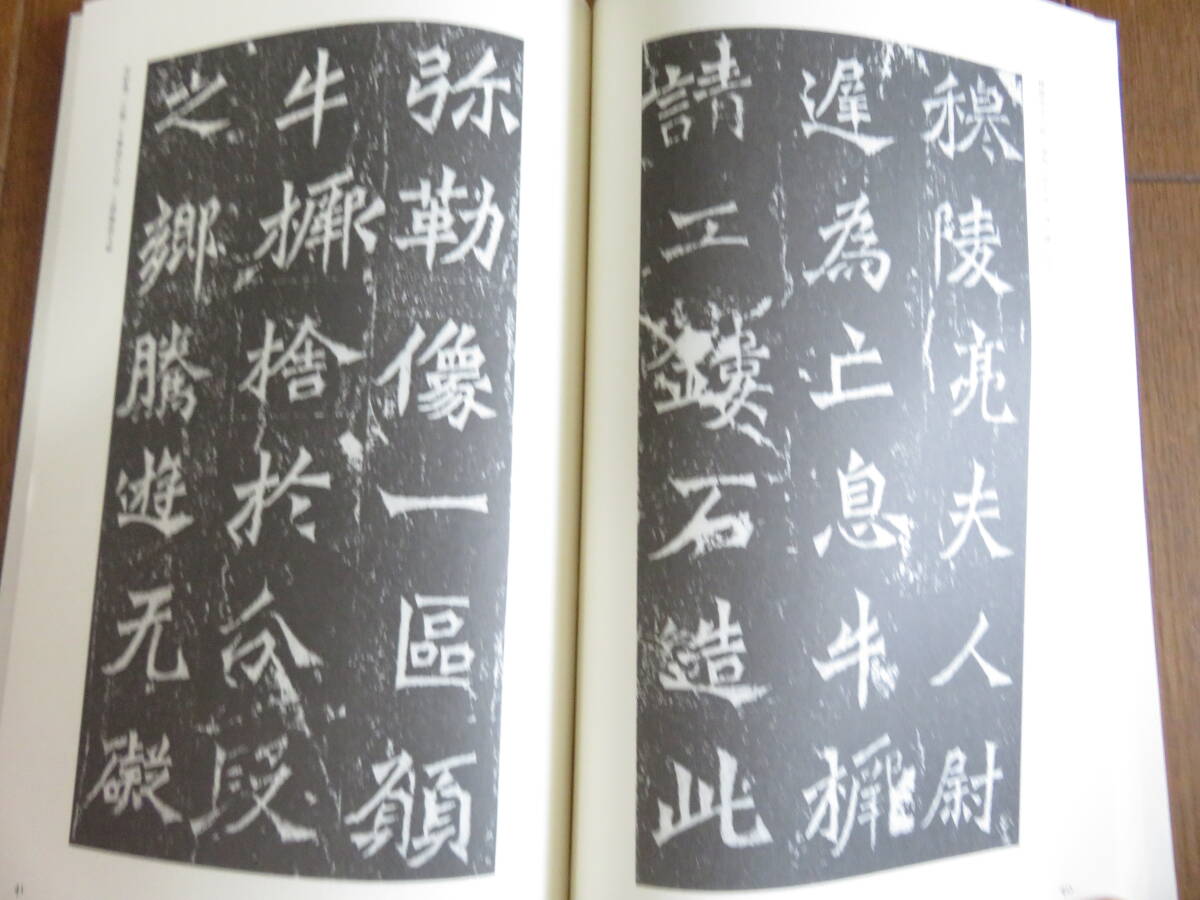 穆陵亮夫人尉
遲為亡息牛橛
請工鏤石造此
弥勒像一區願
牛橛捨於分段
之鄉騰遊无礙